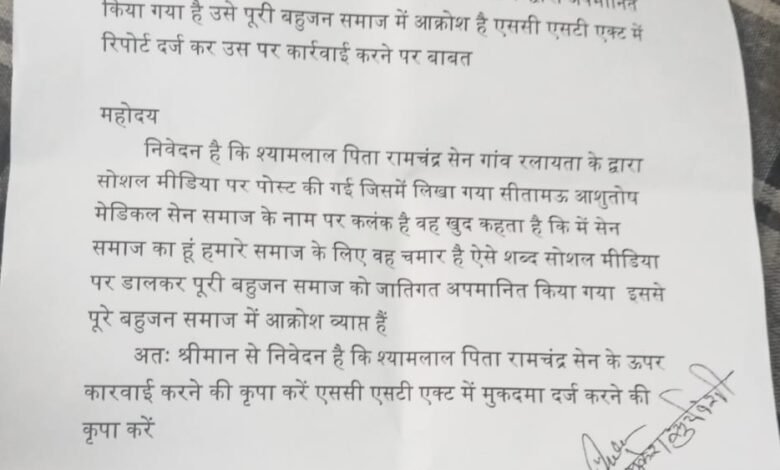 किया गया है उसे पूरी बहुजन समाज में आक्रोश है एससी एसटी एक्ट में
रिपोर्ट दर्ज कर उस पर कार्रवाई करने पर बाबत
महोदय
निवेदन है कि श्यामलाल पिता रामचंद्र सेन गांव रलायता के द्वारा
सोशल मीडिया पर पोस्ट की गई जिसमें लिखा गया सीतामऊ आशुतोष
मेडिकल सेन समाज के नाम पर कलंक है वह खुद कहता है कि में सेन
समाज का हूं हमारे समाज के लिए वह चमार है ऐसे शब्द सोशल मीडिया
पर डालकर पूरी बहुजन समाज को जातिगत अपमानित किया गया इससे
पूरे बहुजन समाज में आक्रोश व्याप्त हैं
अतः श्रीमान से निवेदन है कि श्यामलाल पिता रामचंद्र सेन के ऊपर
कारवाई करने की कृपा करें एससी एसटी एक्ट में मुकदमा दर्ज करने की
कृपा करें